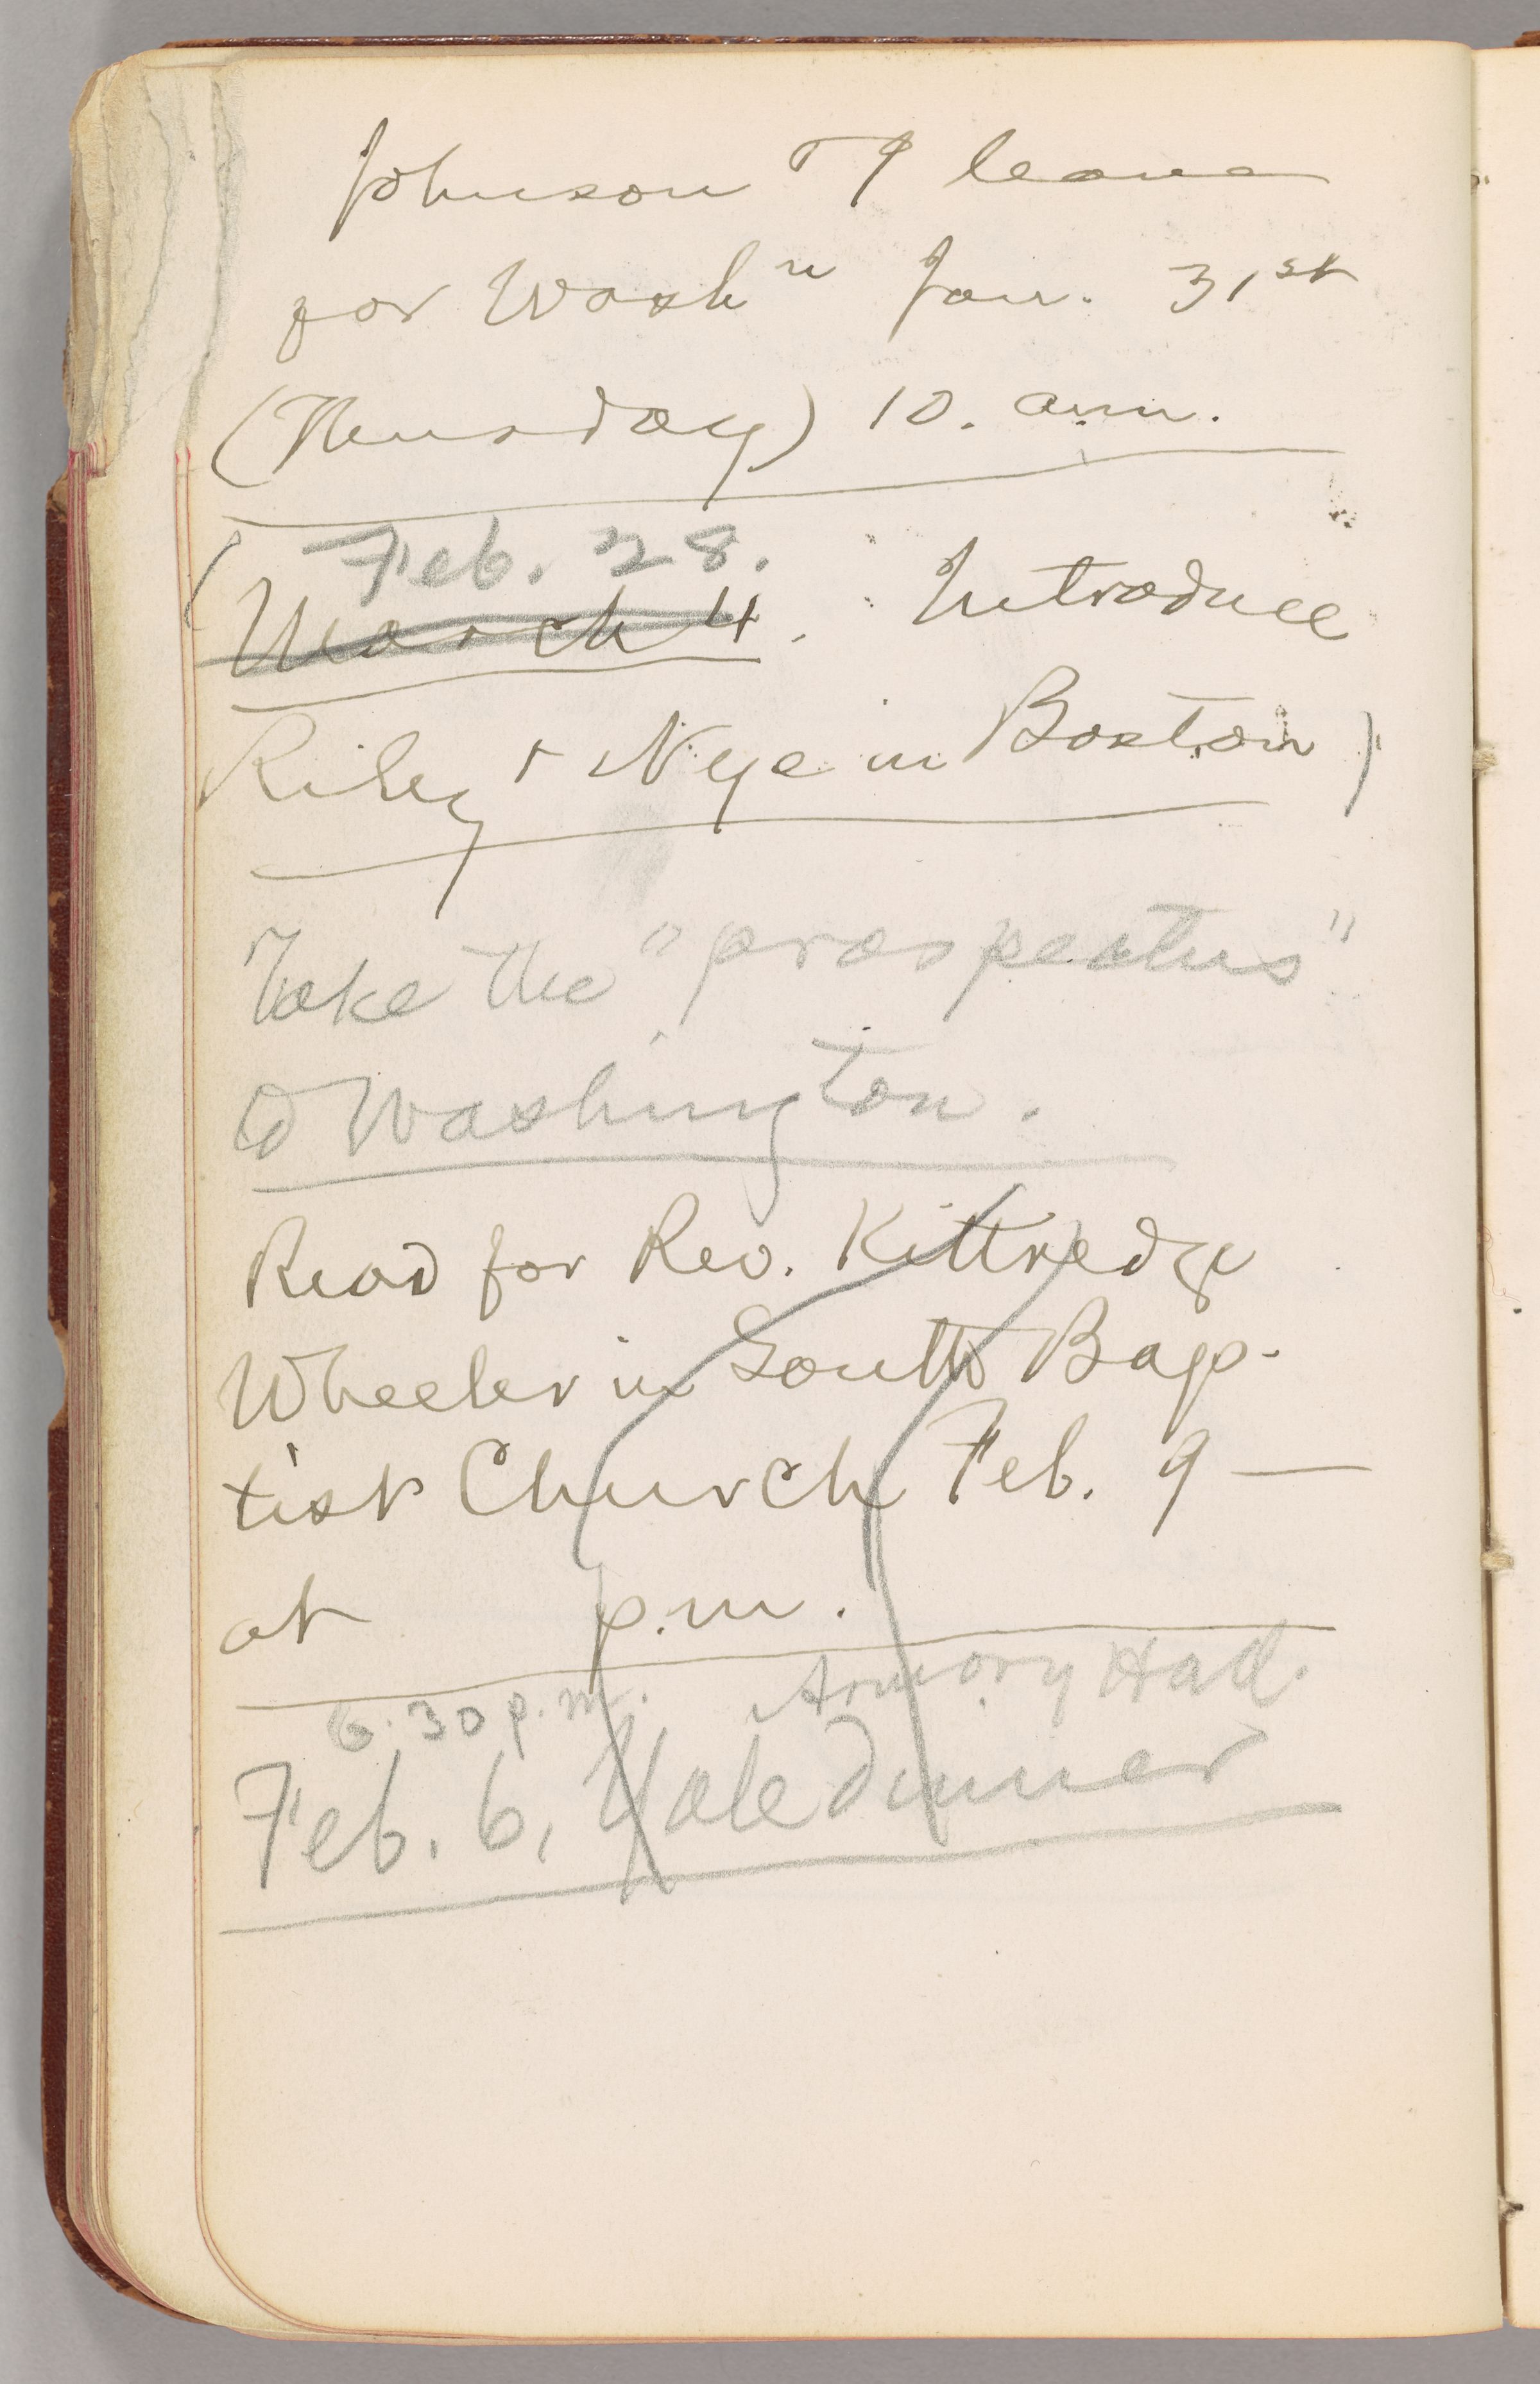 Johnson & I leave
for Washn Jan. 31st
(Thursday) 10. a.m.
Feb. 28.
(March 4. Introduce
Riley & Nye in Boston)
Take the "prospectus"
to Washington.
Read for Rev. Kittredge
Wheeler in South Bap-
tist Church, Feb. 9—
at p.m.
6.30 p.m. Armory Hall.
Feb. 6, Yale dinner